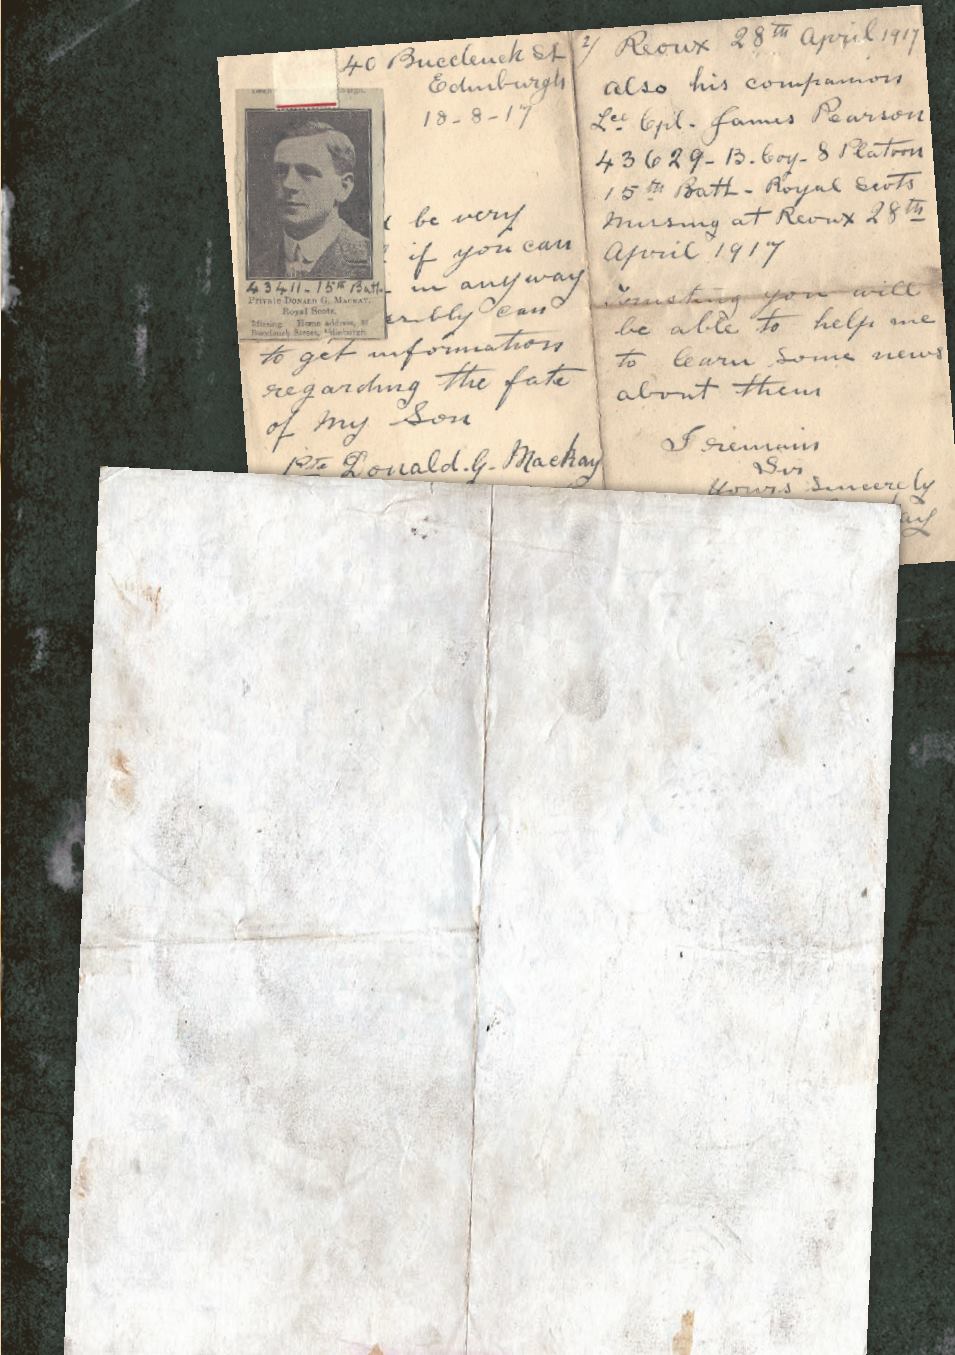 40 Buccleuch St
Edinburgh
18-8-17
be very
if you can
in anyway
can
to get information
regarding the fate
of my Son
Pte Donald. G. Mackay
43411-15th Batt.
Private Donald G. Mackay,
Royal Scots.
Missing. Home address, 40
Buccleuch Street, Edinburgh.
2/ Reoux 28th April 1917
also his companion
Lce Cpl. James Pearson
43629-B. Coy-8 Platoon
15th Batt-Royal Scots
Missing at Reoux 28th
April 1917
Trusting you will
be able to help me
to learn some news
about them
I remain
Sir
Yours Sincerely